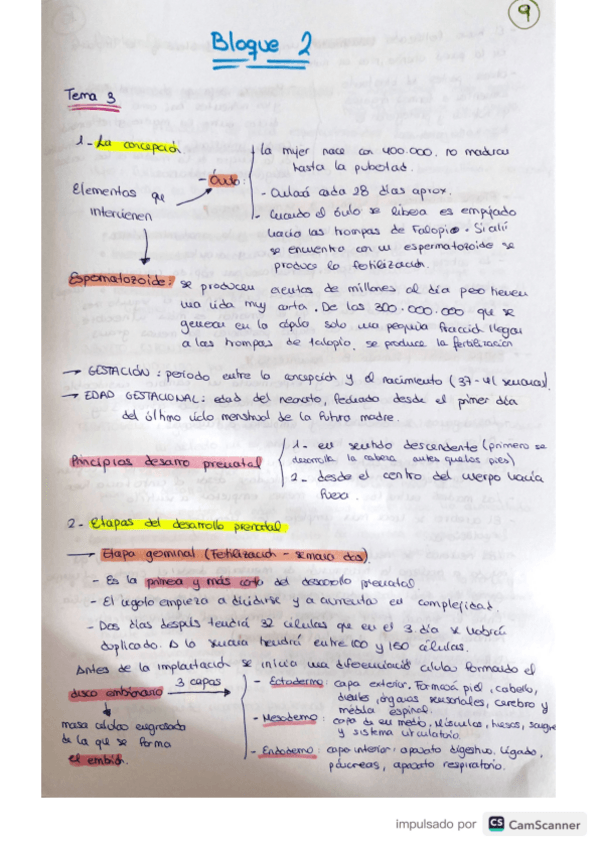 9
Bloque 2
Tema 3
1- La concepción
Elementos que
intervienen
- Óvulo:
La mujer nace con 400.000. no maduran
hasta la pubertad.
- Ovulará cada 28 días aprox.
- Cuando el óvulo se libera es empujado
hacia las trompas de Falopio. Si allí
se encuentra con un espermatozoide se
produce la fertilización.
Espermatozoide: se producen cientos de millones al día pero tienen
una vida muy corta. De los 300.000.000 que se
generan en la cópula solo una pequeña fracción llegan
a las trompas de falopio. se produce la fertilización
→ GESTACIÓN: período entre la concepción y el nacimiento (37-41 semanas).
→ EDAD GESTACIONAL: edad del neonato, fechado desde el primer día
del último ciclo menstrual de la futura madre.
Principios desarro prenatal
1- en sentido descendente (primero se
desarrolla la cabeza antes que los pies)
2- desde el centro del cuerpo hacia
fuera.
2- Etapas del desarrollo prenatal
→ Etapa germinal (fertilización - semana dos).
- Es la primera y más corta del desarrollo prenatal
- El cigoto empieza a dividirse y a aumentar en complejidad.
- Dos días después tendrá 32 células que en el 3. día se habrán
duplicado. A la semana tendrá entre 100 y 150 células.
Antes de la implantación se inicia una diferenciació celular formando el
disco embrionario
3 capas
masa celular engrosada
de la que se forma
el embrión.
- Ectodermo: capa exterior. Formará piel, cabello,
dientes, órganos sensoriales, cerebro y
médula espinal.
- Mesodermo: capa de en medio, músculos, huesos, sangre
y sistema circulatorio.
- Endodermo: capa interior, aparato digestivo. hígado,
páncreas, aparato respiratorio.
impulsado por CS CamScanner